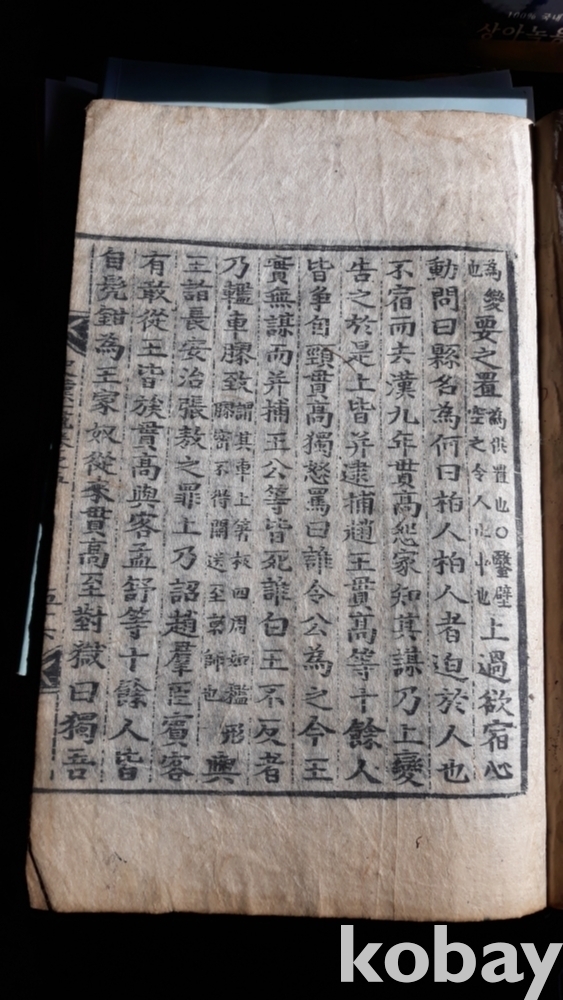 為變也要之置為供置也○鑿壁空之令人止中也上過欲宿心
動問曰縣名為何曰柏人柏人者迫於人也
不宿而去漢九年貫高怨家知其謀乃上變
告之於是上皆并逮捕趙王貫高等十餘人
皆爭自頸貫高獨怒罵曰誰令公為之今王
實無謀而并捕王公等皆死誰白王不反者
乃轞車膠致謂其車上著板四周如檻形膠密不得開送至京師也與
王詣長安治張敖之罪上乃詔趙羣臣賓客
有敢從王皆族貫高與客孟舒等十餘人皆
自髠鉗為王家奴從來貫高至對獄曰獨吾
100% 국내
kobay